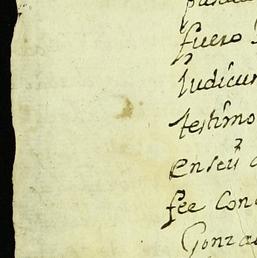 fuero
Judicun
testimo
en seu
fee Con
Gonza